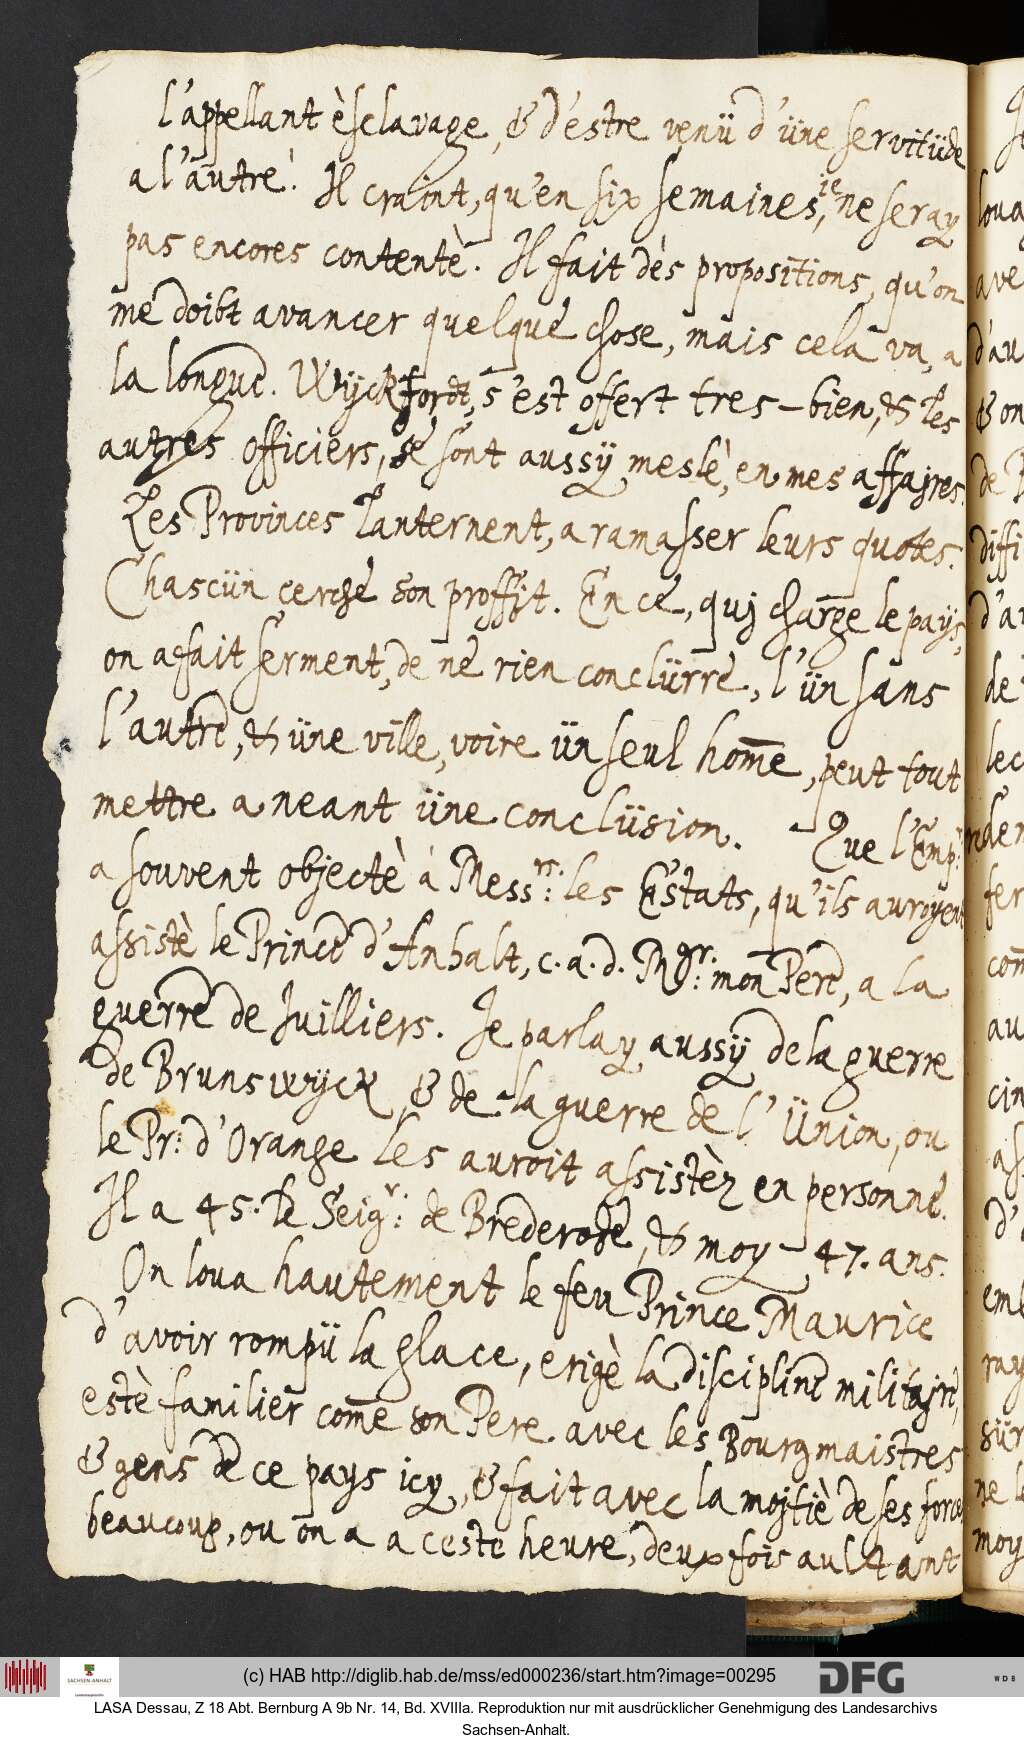 l'appellant èsclavage, & d'éstre venü d'üne servitüde
a l'autre. Il craint, qu'en six semaines, ie ne seray
pas encores contentè. Il fait dés propositions, qu'on
me doibt avancer quelque chose, mais cela va, a
la longue. Wÿckfordt, s'est offert tres-bien, & les
autres officiers, se sont aussÿ meslè, en mes affajres.
Les Provinces lanternent, a ramasser leurs quotes.
Chascün cerche son proffijt. En ce, quj charge le pays,
on a fait serment, de ne rien conclürre, l'ün sans
l'autre, & üne ville, voire ün seul home, peut tout
mettre a neant üne conclüsion. - Que l'Emp:
a souvent objectè á Mess.rs: les Estats, qu'ils auroyent
assistè le Prince d'Anhalt, c. a. d. Mgr: mon Pere, a la
guerre de Juilliers. Je parlay aussÿ de la guerre
de Brunswyck, & de la guerre de l'Ünion, ou
le Pr: d'Orange les auroit assistèz en personne.
Il a 45. le Seigr: de Brederode, & moy - 47. ans.
On loua hautement le feu Prince Maurice
d'avoir rompü la glace, erigè la discipline militajre,
estè familier come son Pere avec les Bourgmaistres
& gens de ce pays icy, & fait avec la mojtiè de ses forces
beaucoup, ou on a a ceste heure, deux fois aultant
(c) HAB http://diglib.hab.de/mss/ed000236/start.htm?image=00295
SACHSEN-ANHALT
DFG
WDB
LASA Dessau, Z 18 Abt. Bernburg A 9b Nr. 14, Bd. XVIIIa. Reproduktion nur mit ausdrücklicher Genehmigung des Landesarchivs
Sachsen-Anhalt.